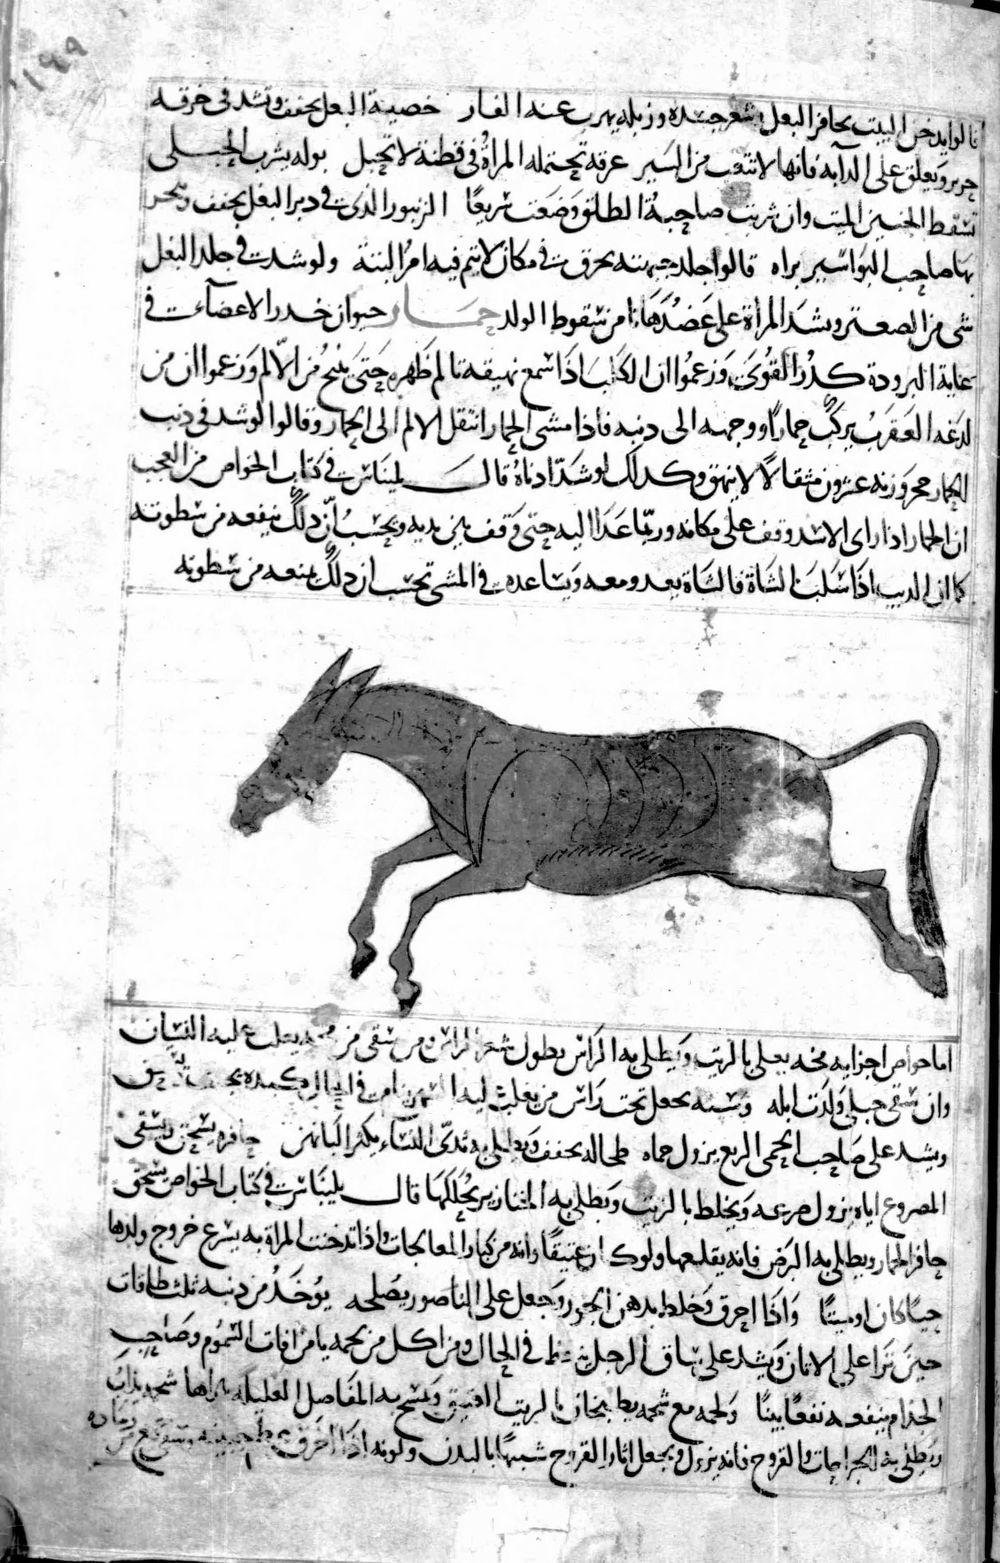 ١٩٩
قالوا يدخن البيت بحافر البعل شعر جسده وزبله يهرب عنه الفار خصية البعل يجفف وتشد فى خرقه
حرير ويعلق على الدابه فانها لا تتعب من السير عرقه تحتمله المراة فى قطنة لا تحبل بوله يشرب الحبلى
تسقط الجنين الميت وان شربت صاحبة الطلق وضعت سريعا الزنبور الذى فى دبر البغل يجفف ويبخر
بها صاحب البواسير براه قالوا جلد جبهته يحرق فى مكان لا يتم فيه امر البتة ولو شدت فى جلد البغل
شى من الصعتر ويشد المراة على عضدها امن سقوط الولد حمار حيوان خدر الاعضاء فى
غاية البرودة كدر القوى وزعموا ان الكلب اذا سمع نهيقه تالم ظهره حتى ينبح من الالم وزعموا ان من
لدغه العقرب يركب حمارا ووجهه الى دنبه فاذا مشى الحمار انتقل الالم الى الحمار وقالوا لو شد فى دنب
الحمار حجر وزنه عشرون مثقالا لا ينهق وكدلك لو شد اذناه قال بليناس فى كتاب الخواص من العجب
ان الحمار اذا راى الاسد وقف على مكانه وربما عدا اليه حتى وقف بين يديه ويحسب ان دلك ينفعه من سطوته
كما ان الديب اذا سلب الشاة فالشاة يعدو معه ويساعده فى المشى تحسب ان دلك يمنعه من سطوته
اما خواص اجزايه مخه يعلى بالزيت ويطلى به الراس يطول شعر الراس ومن سقى من مخه يعلب عليه النسيان
وان سقى حبلى ولدت ابله وسنه يجعل تحت راس من يغلب ليه النوم نام فى الحال كبده يجفف
ويشد على صاحب الحمى الربع يزول حماه طحاله يجفف ويطلى به ثدى النساء يكثر البانهن حافره يسحق ويسقى
المصروع اياه يزول صرعه ويخلط بالزيت ويطلى به الخنازير يحللها قال بليناس فى كتاب الخواص يسحق
حافر الحمار ويطلى به البرص فانه يقلعها ولو كان عتيقا وانه من كبار المعالجات واذا تدخنت المراة به يسرع خروج ولدها
حيا كان او ميتا واذا احرق وخلط بدهن الجوز وجعل على الناصور يصلحه يوخذ من دنبه ثلث طاقات
حين نزا على الاتان ويشد على ساق الرجل ينعظ فى الحال ومن اكل من لحمه يامن افات السموم وصاحب
الجذام ينفعه نفعا بينا ولحمه مع شحمه يطبخان بالزيت العتيق ويمسح به المفاصل العليله براها شحمه يذاب
ويطلى به الجراحات والقروح فانه يزول ويجعل اثار القروح شبيها بالبدن ولونه اذا احرق